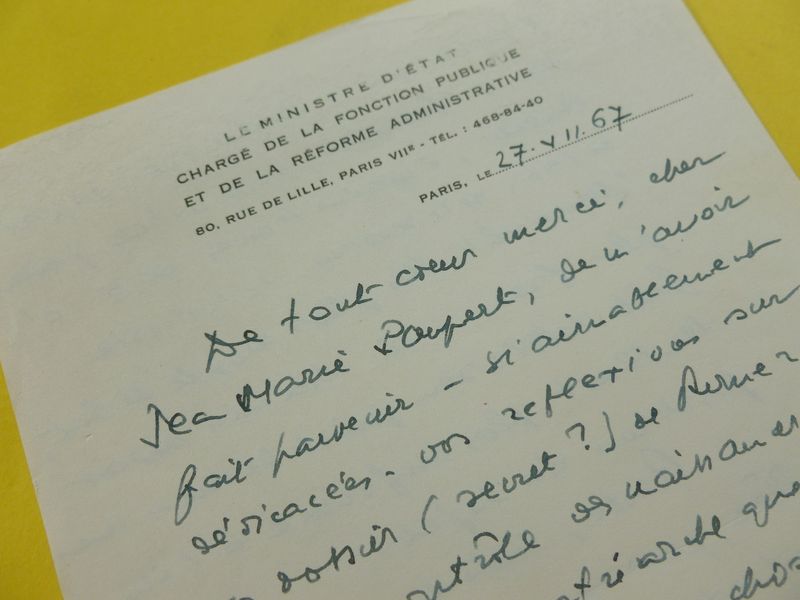 LE MINISTRE D'ÉTAT
CHARGÉ DE LA FONCTION PUBLIQUE
ET DE LA RÉFORME ADMINISTRATIVE
80, RUE DE LILLE, PARIS VIIᵉ - TÉL. : 468-84-40
PARIS, LE 27. VII. 67
De tout cœur merci, cher
Jean Marie Paupert, de m'avoir
fait parvenir - si aimablement
dédicacées - vos réflexions sur
dossier (secret ?) de Rome
contrôle des naissances
que